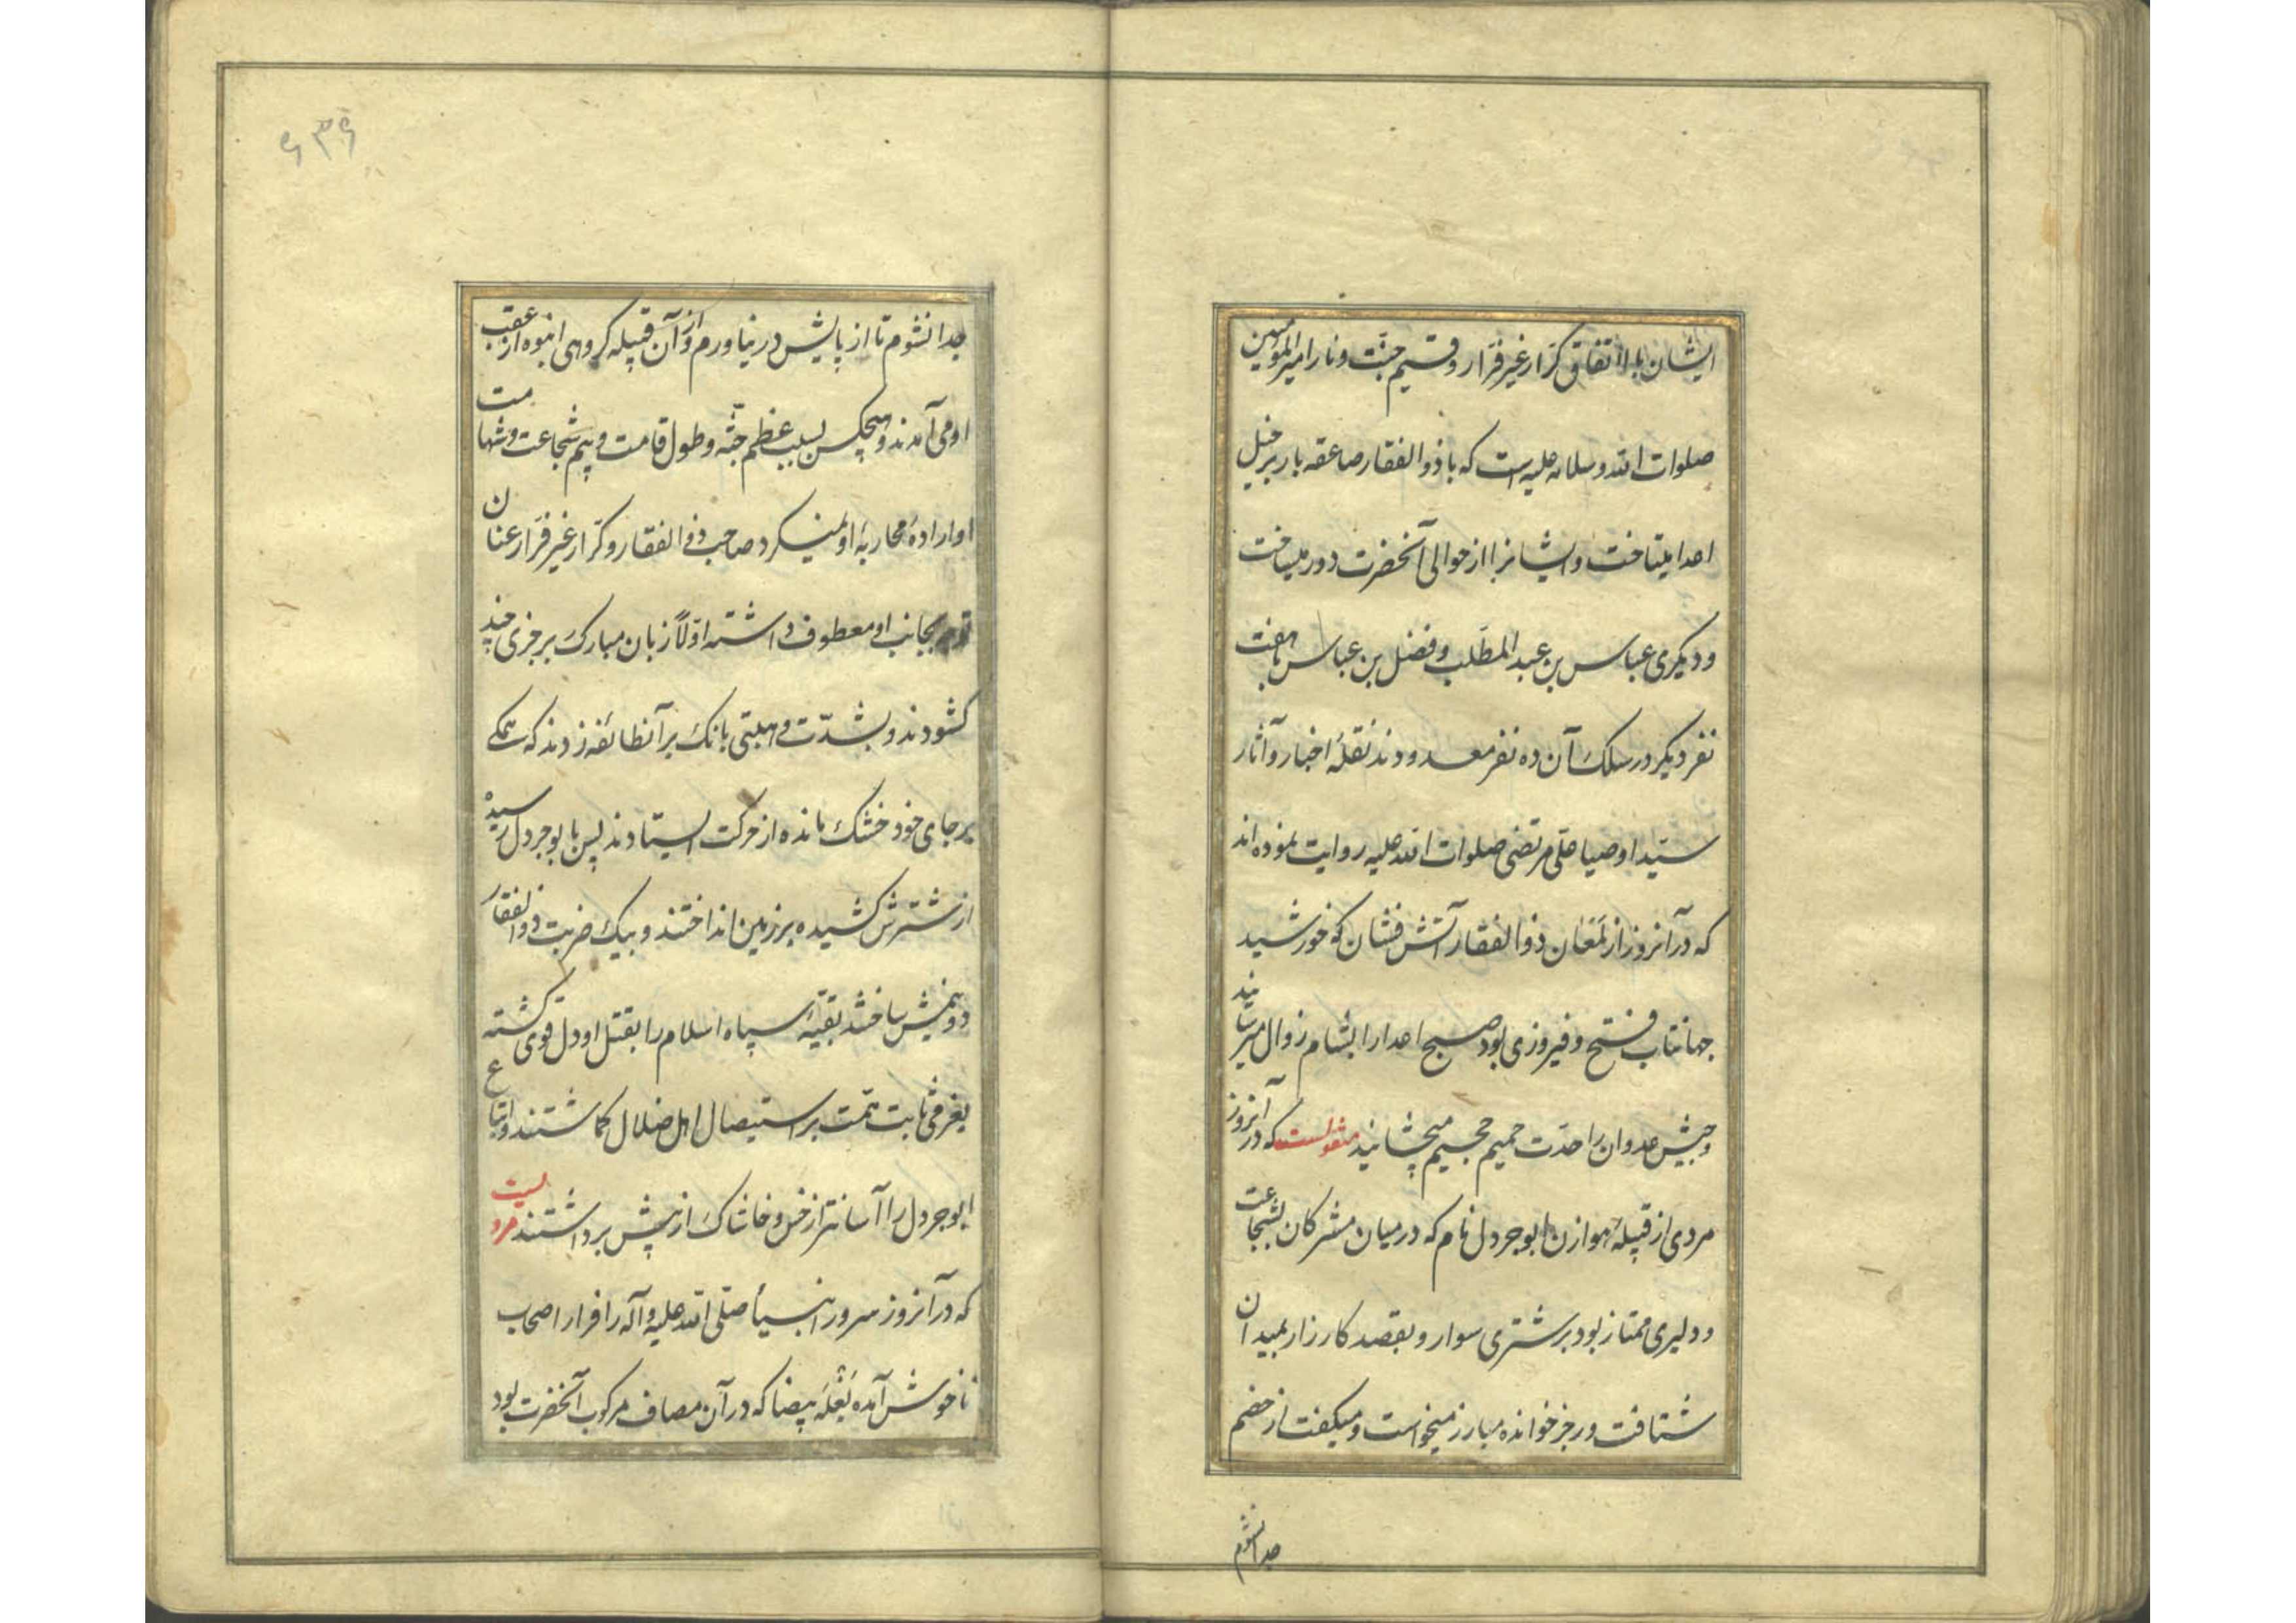 ایشان بااتفاق کرّار غیر فرّار و قسیم جنّت و نار امیرالمؤمنین
صلوات الله و سلامه علیه است که با ذوالفقار صاعقه بار بر خیل
اعدا میتاخت و ایشانرا از حوالی آنحضرت دور میساخت
و دیکری عباس بن عبد المطّلب و فضل بن عباس با هفت
نفر دیکر در سلک آن ده نفر معدودند نقلهٔ اخبار و آثار
سیّد اوصیا علی مرتضی صلوات الله علیه روایت نموده اند
که در آنروز از لَمَعَان ذوالفقار آتش فشان که خورشید
جهانتاب فتح و فیروزی بود صبح اعدا را بشام زوال میرسانید
و جیش عدوان را حدّت حمیم جحیم میچشانید منقولست که در آنروز
مردی از قبیلهٔ هوازن ابوجرول نام که در میان مشرکان بشجاعت
و دلیری ممتاز بود بر شتری سوار و بقصد کارزار بمیدان
شتافت و رجز خوانده مبارز میخواست و میکفت از خصم
جدا نشوم
۶۳۶
جدا نشوم تا از پایش در نیاورم و از آن قبیله کروهی انبوه از عقب
او می آمدند و هیچکس بسبب عظم جثّه و طول قامت و بیم شجاعت و شهامت
او ارادهٔ محاربهٔ او نمیکرد صاحب ذوالفقار و کرّار غیر فرّار عنان
بجانب او معطوف داشته اوّلاً زبان مبارک برجزی چند
کشودند و بشدّت و هیبتی بانک بر آنطائفه زدند که همکی
بر جای خود خشک مانده از حرکت ایستادند پس بابوجرول رسیده
از شترش کشیده بر زمین انداختند و بیک ضربت ذوالفقار
دو نیمش ساختند بقیّهٔ سپاه اسلام را بقتل او دل قوی کشته
بعزمی ثابت همّت بر استیصال اهل ضلال کماشتند و اتباع
ابوجرول را آسانتر از خس و خاشاک از پیش برداشتند مرویست
که در آنروز سرور انبیأ صلّی الله علیه و آله را فرار اصحاب
ناخوش آمده بَغلَهٔ بیضا که در آن مصاف مرکوب آنحضرت بود